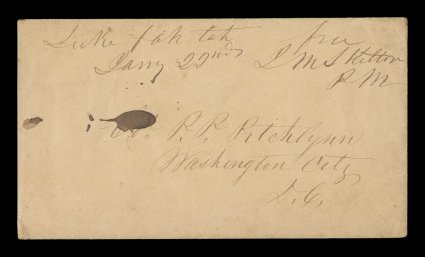 Luke fah tah free
Jany 22nd L M S Hilton
P M
Col. P. P. Pitchlynn
Washington City
D. C.